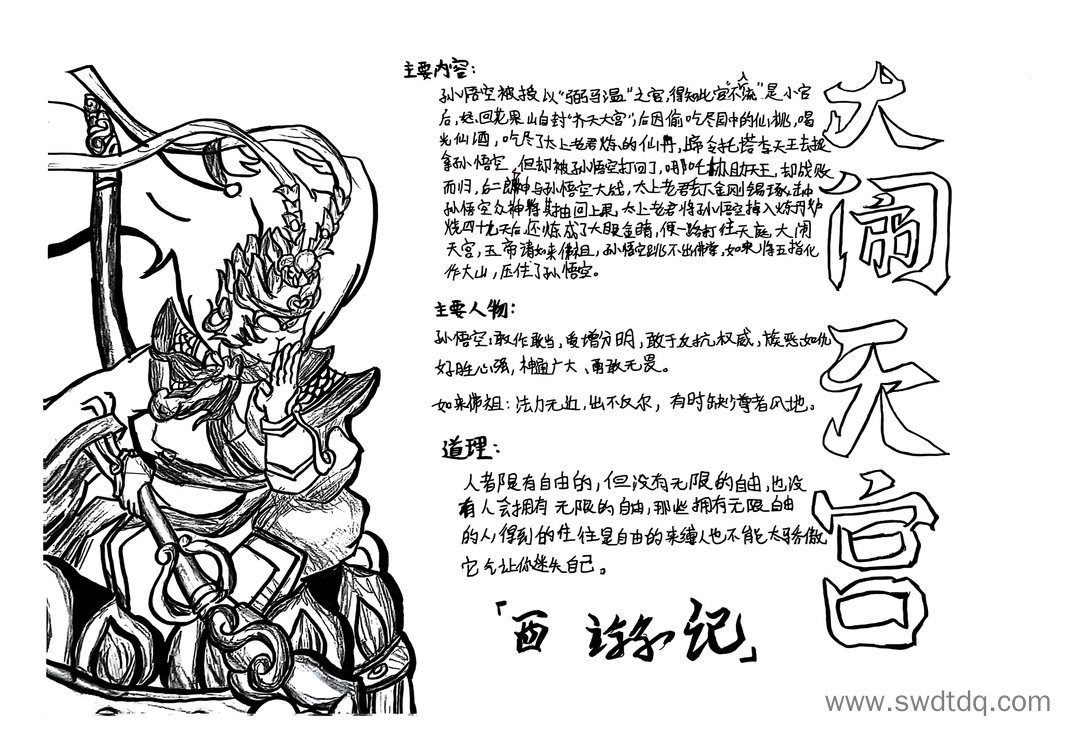 主要内容：
孙悟空被授以“弼马温”之官，得知此官“不入流”是小官
后，怒回花果山自封“齐天大宫”，后因偷吃尽园中的仙桃，喝
光仙酒，吃尽了太上老君炼的仙丹，帝令托塔李天王去捉
拿孙悟空，但却被孙悟空打回了，哪吒协助天王，却战败
而归，后二郎神与孙悟空大战，太上老君丢下金刚镯琢击中
孙悟空众神将其抽回上界，太上老君将孙悟空掉入炼丹炉
烧四十九天后，还炼成了火眼金睛，便一路打往天庭大闹
天宫，玉帝请如来佛祖，孙悟空跳不出佛掌，如来将五指化
作大山，压住了孙悟空。
主要人物：
孙悟空：敢作敢当，爱憎分明，敢于反抗权威，嫉恶如仇
好胜心强，神通广大、勇敢无畏。
如来佛祖：法力无边，出尔反尔，有时缺少尊者风地。
道理：
人都是有自由的，但没有无限的自由，也没
有人会拥有无限的自由，那些拥有无限自由
的人，得到的往往是自由的束缚，人也不能太骄傲
它会让你迷失自己。
「西游记」
大闹天宫
www.swdtdq.com